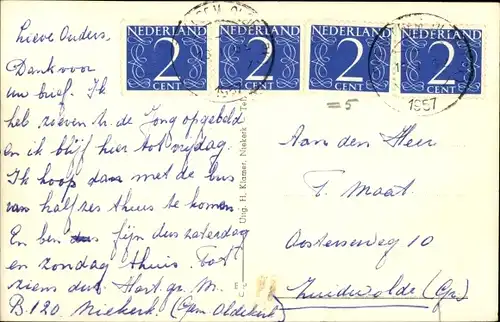 NEDERLAND NEDERLAND NEDERLAND NEDERLAND
2 2 2 2
CENT CENT CENT CENT
1957
=5
Lieve Ouders.
Dank voor
uw brief. Ik
heb zieven t. de Jong opgebeld
en ik blijf hier tot vrijdag.
Ik hoop dan met de bus
van half zes thuis te komen.
En ben dus fijn dus zaterdag
en zondag thuis. Tot
ziens dus. Hart. gr. M.
B.120. Niekerk. (Gem Oldekerk)
Uitg. H. Klamer, Niekerk
Aan den Heer
T. Maat
Oosterseweg 10
Zuidwolde (Gr.)